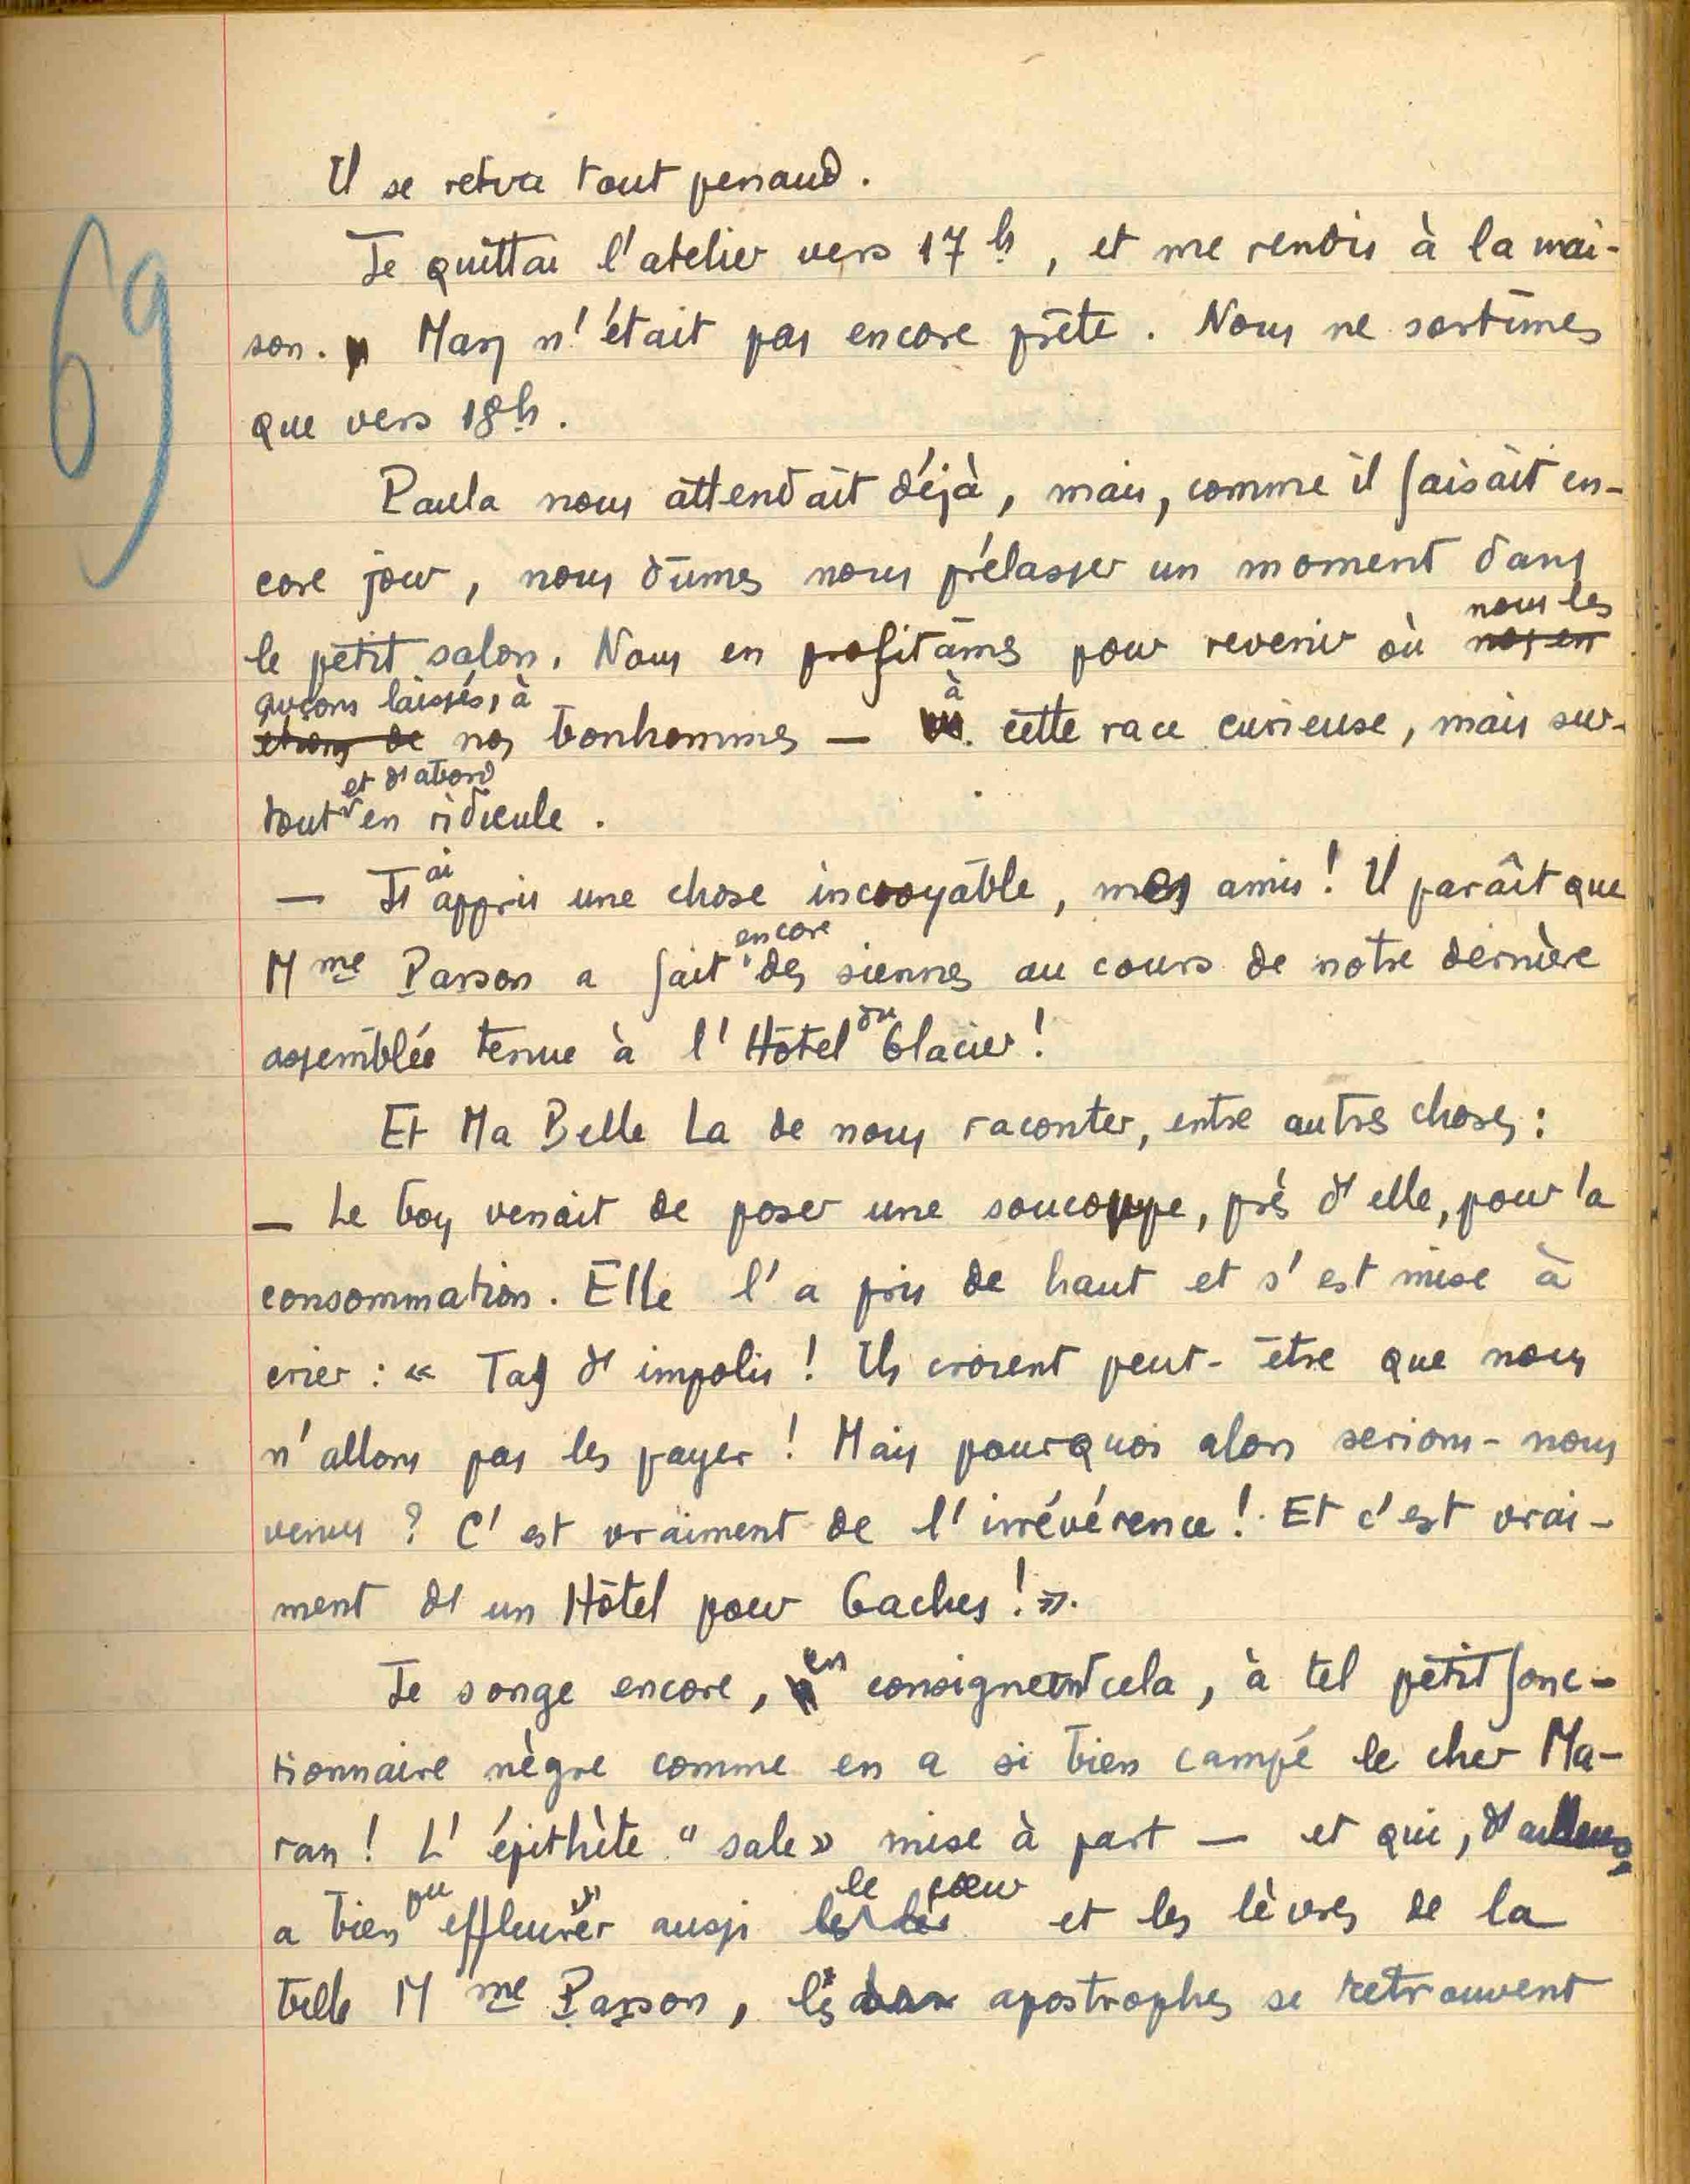 69
Il se retira tout penaud.
Je quittai l'atelier vers 17 h, et me rendis à la mai-
son. Mary n'était pas encore prête. Nous ne sortîmes
que vers 18 h.
Paula nous attendait déjà, mais, comme il faisait en-
core jour, nous dûmes nous prélasser un moment dans
le petit salon. Nous en profitâmes pour revenir où nous les
avions laissés, à nos bonhommes — à cette race curieuse, mais sur-
tout et d'abord en ridicule.
— J'ai appris une chose incroyable, mes amis ! Il paraît que
Mme Parson a fait encore des siennes au cours de notre dernière
assemblée tenue à l'Hôtel du Glacier !
Et Ma Belle La de nous raconter, entre autres choses :
— Le boy venait de poser une soucoupe, près d'elle, pour la
consommation. Elle l'a pris de haut et s'est mise à
crier : « Tas d'impolis ! Ils croient peut-être que nous
n'allons pas les payer ! Mais pourquoi alors serions-nous
venus ? C'est vraiment de l'irrévérence ! Et c'est vrai-
ment d'un Hôtel pour Gaches ! ».
Je songe encore, en consignant cela, à tel petit fonc-
tionnaire nègre comme en a si bien campé le cher Ma-
ran ! L'épithète "sale» mise à part — et qui, d'ailleurs,
a bien pu effleurer aussi le cœur et les lèvres de la
belle Mme Parson, les apostrophes se retrouvent